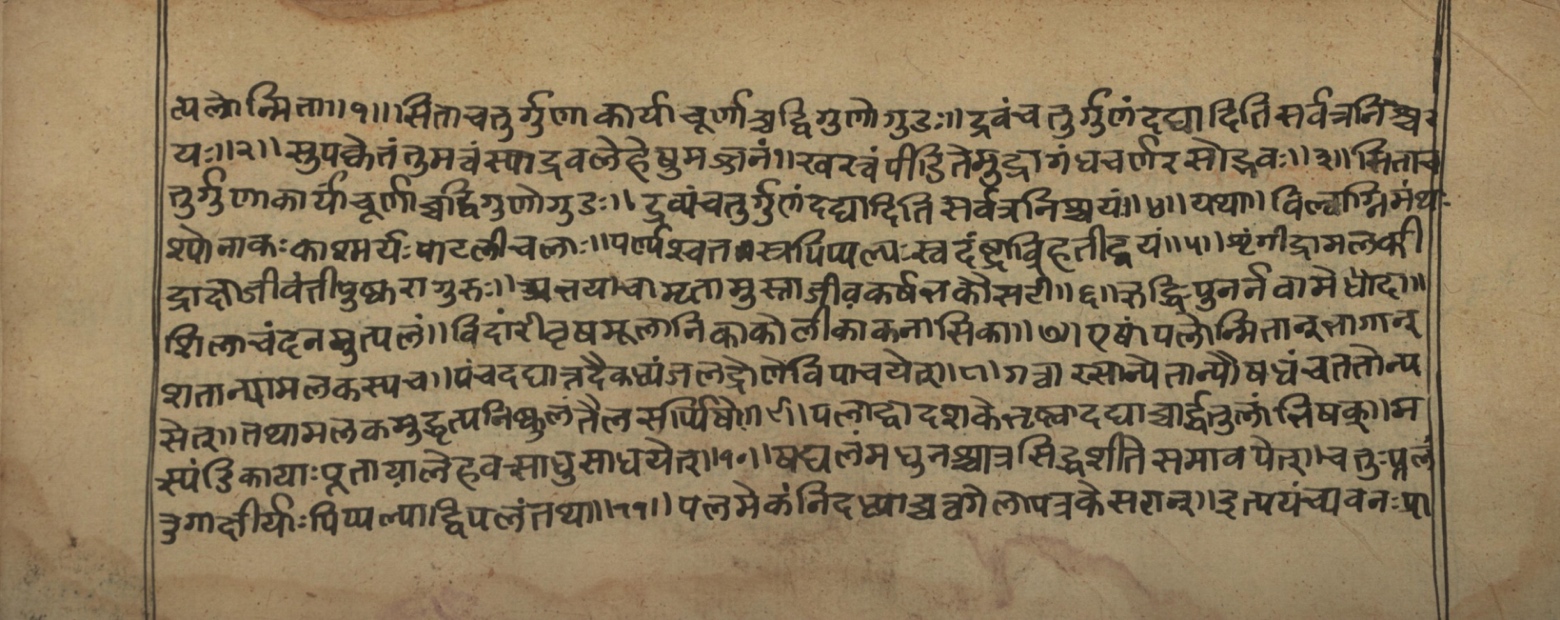 त्पलोन्मिता॥१॥सिताचतुर्गुणाकार्याचूर्णाच्चद्विगुणोगुडः॥द्रवंचतुर्गुणंदद्यादितिसर्वत्रनिश्च
यः॥२॥सुपक्वेतंतुमत्वंस्याद्रवलेहेषुमज्जनं॥खरत्वंपीडितेमुद्रागंधवर्णरसोद्भवः॥३॥सिताच
तुर्गुणाकार्याचूर्णाच्चद्विगुणोगुडः॥द्रव्यंचतुर्गुणंदद्यादितिसर्वत्रनिश्चयं॥४॥यथा॥विल्वाग्निमंथ
श्योनाकःकाश्मर्यःपाटलीचलाः॥पर्ण्यश्चतस्त्रपिप्पल्यःस्वदंष्ट्राव्रिहतीद्वयं॥५॥शृंगीद्रामलकी
द्राक्षाजीवंतीपुष्करागुरुः॥अभयाचामृतामुस्ताजीवकर्षभकौसटी॥६॥ऋद्धिःपुनर्नवामेधोदा॥
शिलाचंदनमुत्पलं॥विदारीवृषमूलानिकाकोलीकाकनासिका॥७॥एषांपलोन्मितान्भागान्
शतान्यामलकस्यच॥पंचदद्यात्रदैकध्यंजलद्रोणेविपाचयेत्॥८॥गत्वारसान्येतान्यौषध्यंचततोन्य
सेत्॥तथामलकमुद्धृत्यनिष्कुलंतैलसर्प्पिषोः॥९॥पलोद्वादशकेभृष्ट्वादद्याच्चार्द्धतुलांभिषक्॥म
त्स्यंडिकायाःपूतायालेहवत्साधुसाधयेत्॥१०॥षट्पलंमधुनश्चात्रसिद्धशीतेसमावपेत्॥चतुःप्पलं
तुगाक्षीर्याःपिप्पल्याद्विपलंतथा॥११॥पलमेकंनिदध्याच्चत्वगेलापत्रकेसरान्॥इत्ययंच्यवनःप्रा